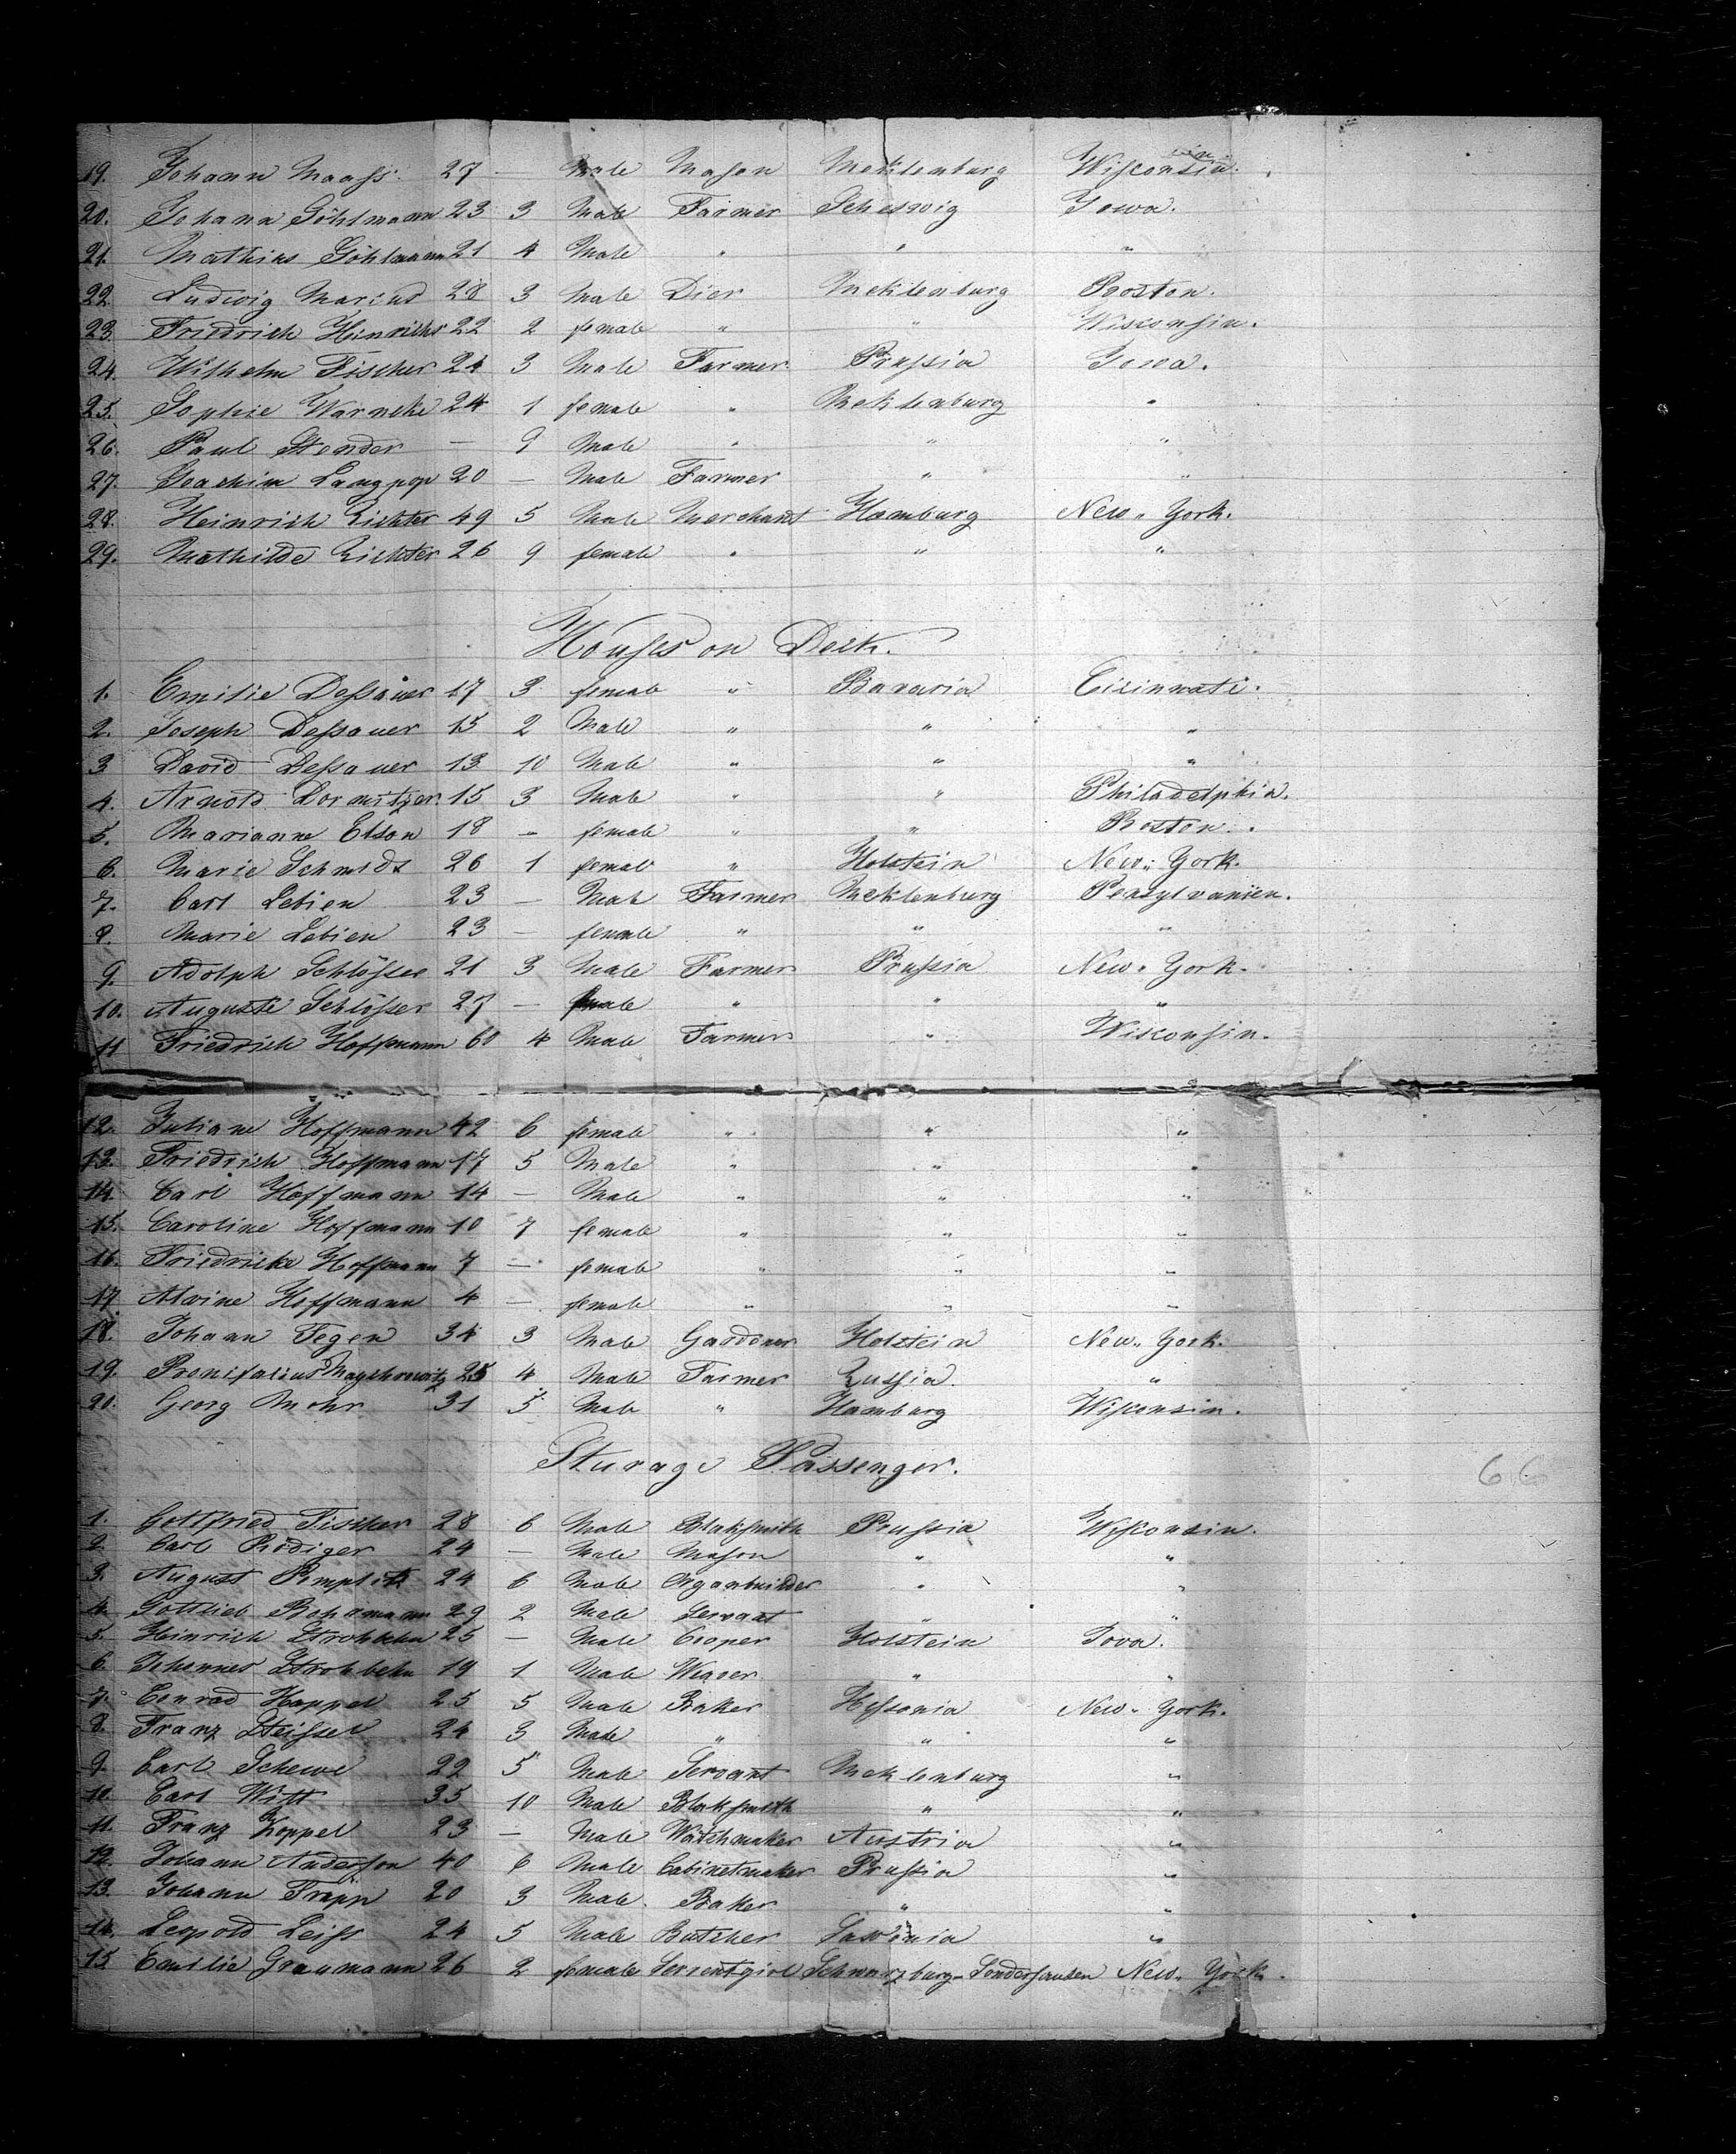 19. Johann Maass. 27 — Male Mason Meklenburg Wisconsin.
20. Johann Göhlmann 23 3 Male Farmer Scheswig Iowa.
21. Mathias Göhlmann 21 4 Male " " "
22. Ludwig Marcus 28 3 Male Dier Meklenburg Boston.
23. Friedrich Hinrichs 22 2 female " " Wisconsin.
24. Wilhelm Fischer 24 3 Male Farmer Prussia Iowa.
25. Sophie Warncke 24 1 female " Meklenburg "
26. Paul Stender — 9 Male " " "
27. Joachim Langpop 20 — Male Farmer " "
28. Heinrich Richter 49 5 Male Merchant Hamburg New-York.
29. Mathilde Richter 26 9 female " " "
Houses on Deck.
1. Emilie Dessauer 17 3 female " Bavaria Cicinnati.
2. Joseph Dessauer 15 2 Male " " "
3 David Dessauer 13 10 Male " " "
4. Arnold Dormitzer 15 3 Male " " Philadelphia.
5. Marianne Elson 18 — female " " Boston.
6. Marie Schmidt 26 1 female " Holstein New-York.
7. Carl Lebien 23 — Male Farmer Meklenburg Pensylvanien.
8. Marie Lebien 23 — female " " "
9. Adolph Schlösser 21 3 Male Farmer Prussia New-York.
10. Auguste Schlösser 27 — female " " "
11 Friedrich Hoffmann 60 4 Male Farmer " Wisconsin.
12. Juliane Hoffmann 42 6 female " " "
13. Friedrich Hoffmann 17 5 Male " " "
14. Carl Hoffmann 14 — Male " " "
15. Caroline Hoffmann 10 7 female " " "
16. Friedricke Hoffmann 7 — female " " "
17. Alwine Hoffmann 4 — female " " "
18. Johann Tegen 34 3 Male Garddner Holstein New-York.
19. 25 4 Male Farmer Russia. "
20. Georg Mohr 31 5 Male " Hamburg Wisconsin.
Sturage Passenger.
66
1. Gottfried Fischer 28 6 Male Blaksmith Prussia Wisconsin.
2. Carl Rödiger 24 — Male Mason " "
3. August Pimplitz 24 6 Male Organbuilder " "
4. Gottlieb Bohrmann 29 2 Male Servant " "
5. Heinrich Strohbehn 25 — Male Cooper Holstein Iova.
6. Johannes Strohbehn 19 1 Male Weaver " "
7. Conrad Happel 25 5 Male Baker Hessonia New-York.
8. Franz Steissel 24 3 Male " " "
9. Carl Schewe 22 5 Male Servant Meklenburg "
10. Carl Witt 35 10 Male Blaksmith " "
11. Franz Koppel 23 — Male Watchmaker Austria "
12. Johann Anderson 40 6 Male Cabinetmaker Prussia "
13. Johann Trapp 20 3 Male Baker " "
14. Leopold Leiss 24 5 Male Butcher "
15 Emilie Graumann 26 2 female Serventgirl Schwarzburg-Sondershausen New-York.